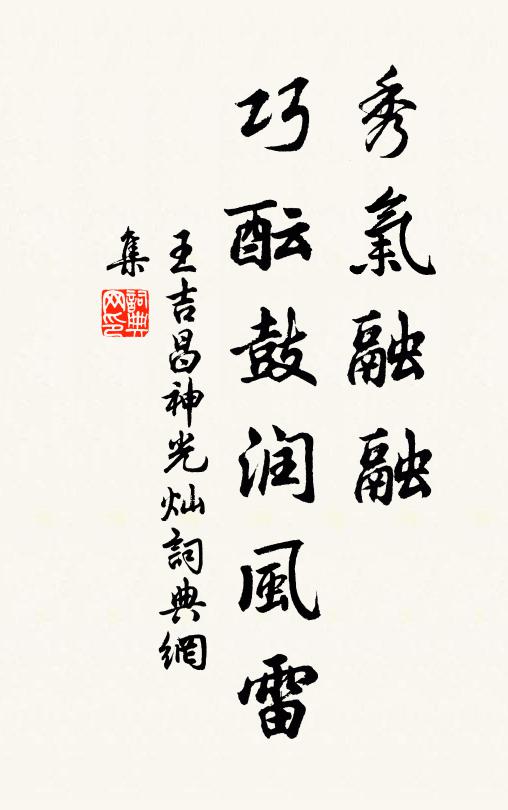 秀氣融融
巧酝鼓润風雷
王吉昌神光灿詞典網
集
詞典
网印